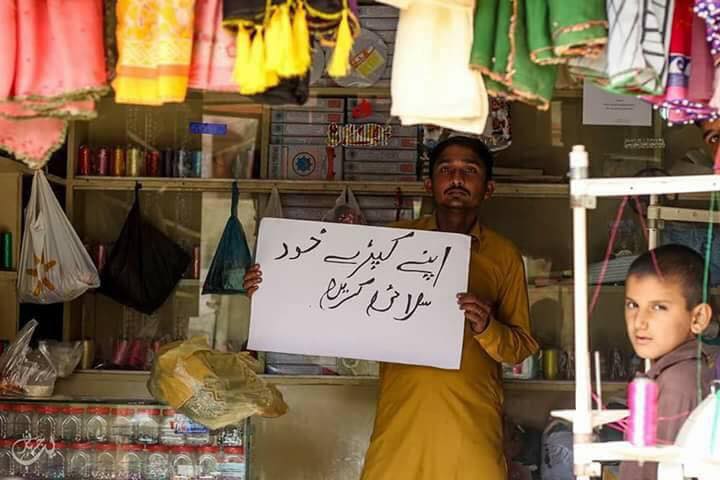 اپنے کپڑے خود
سلائی کریں